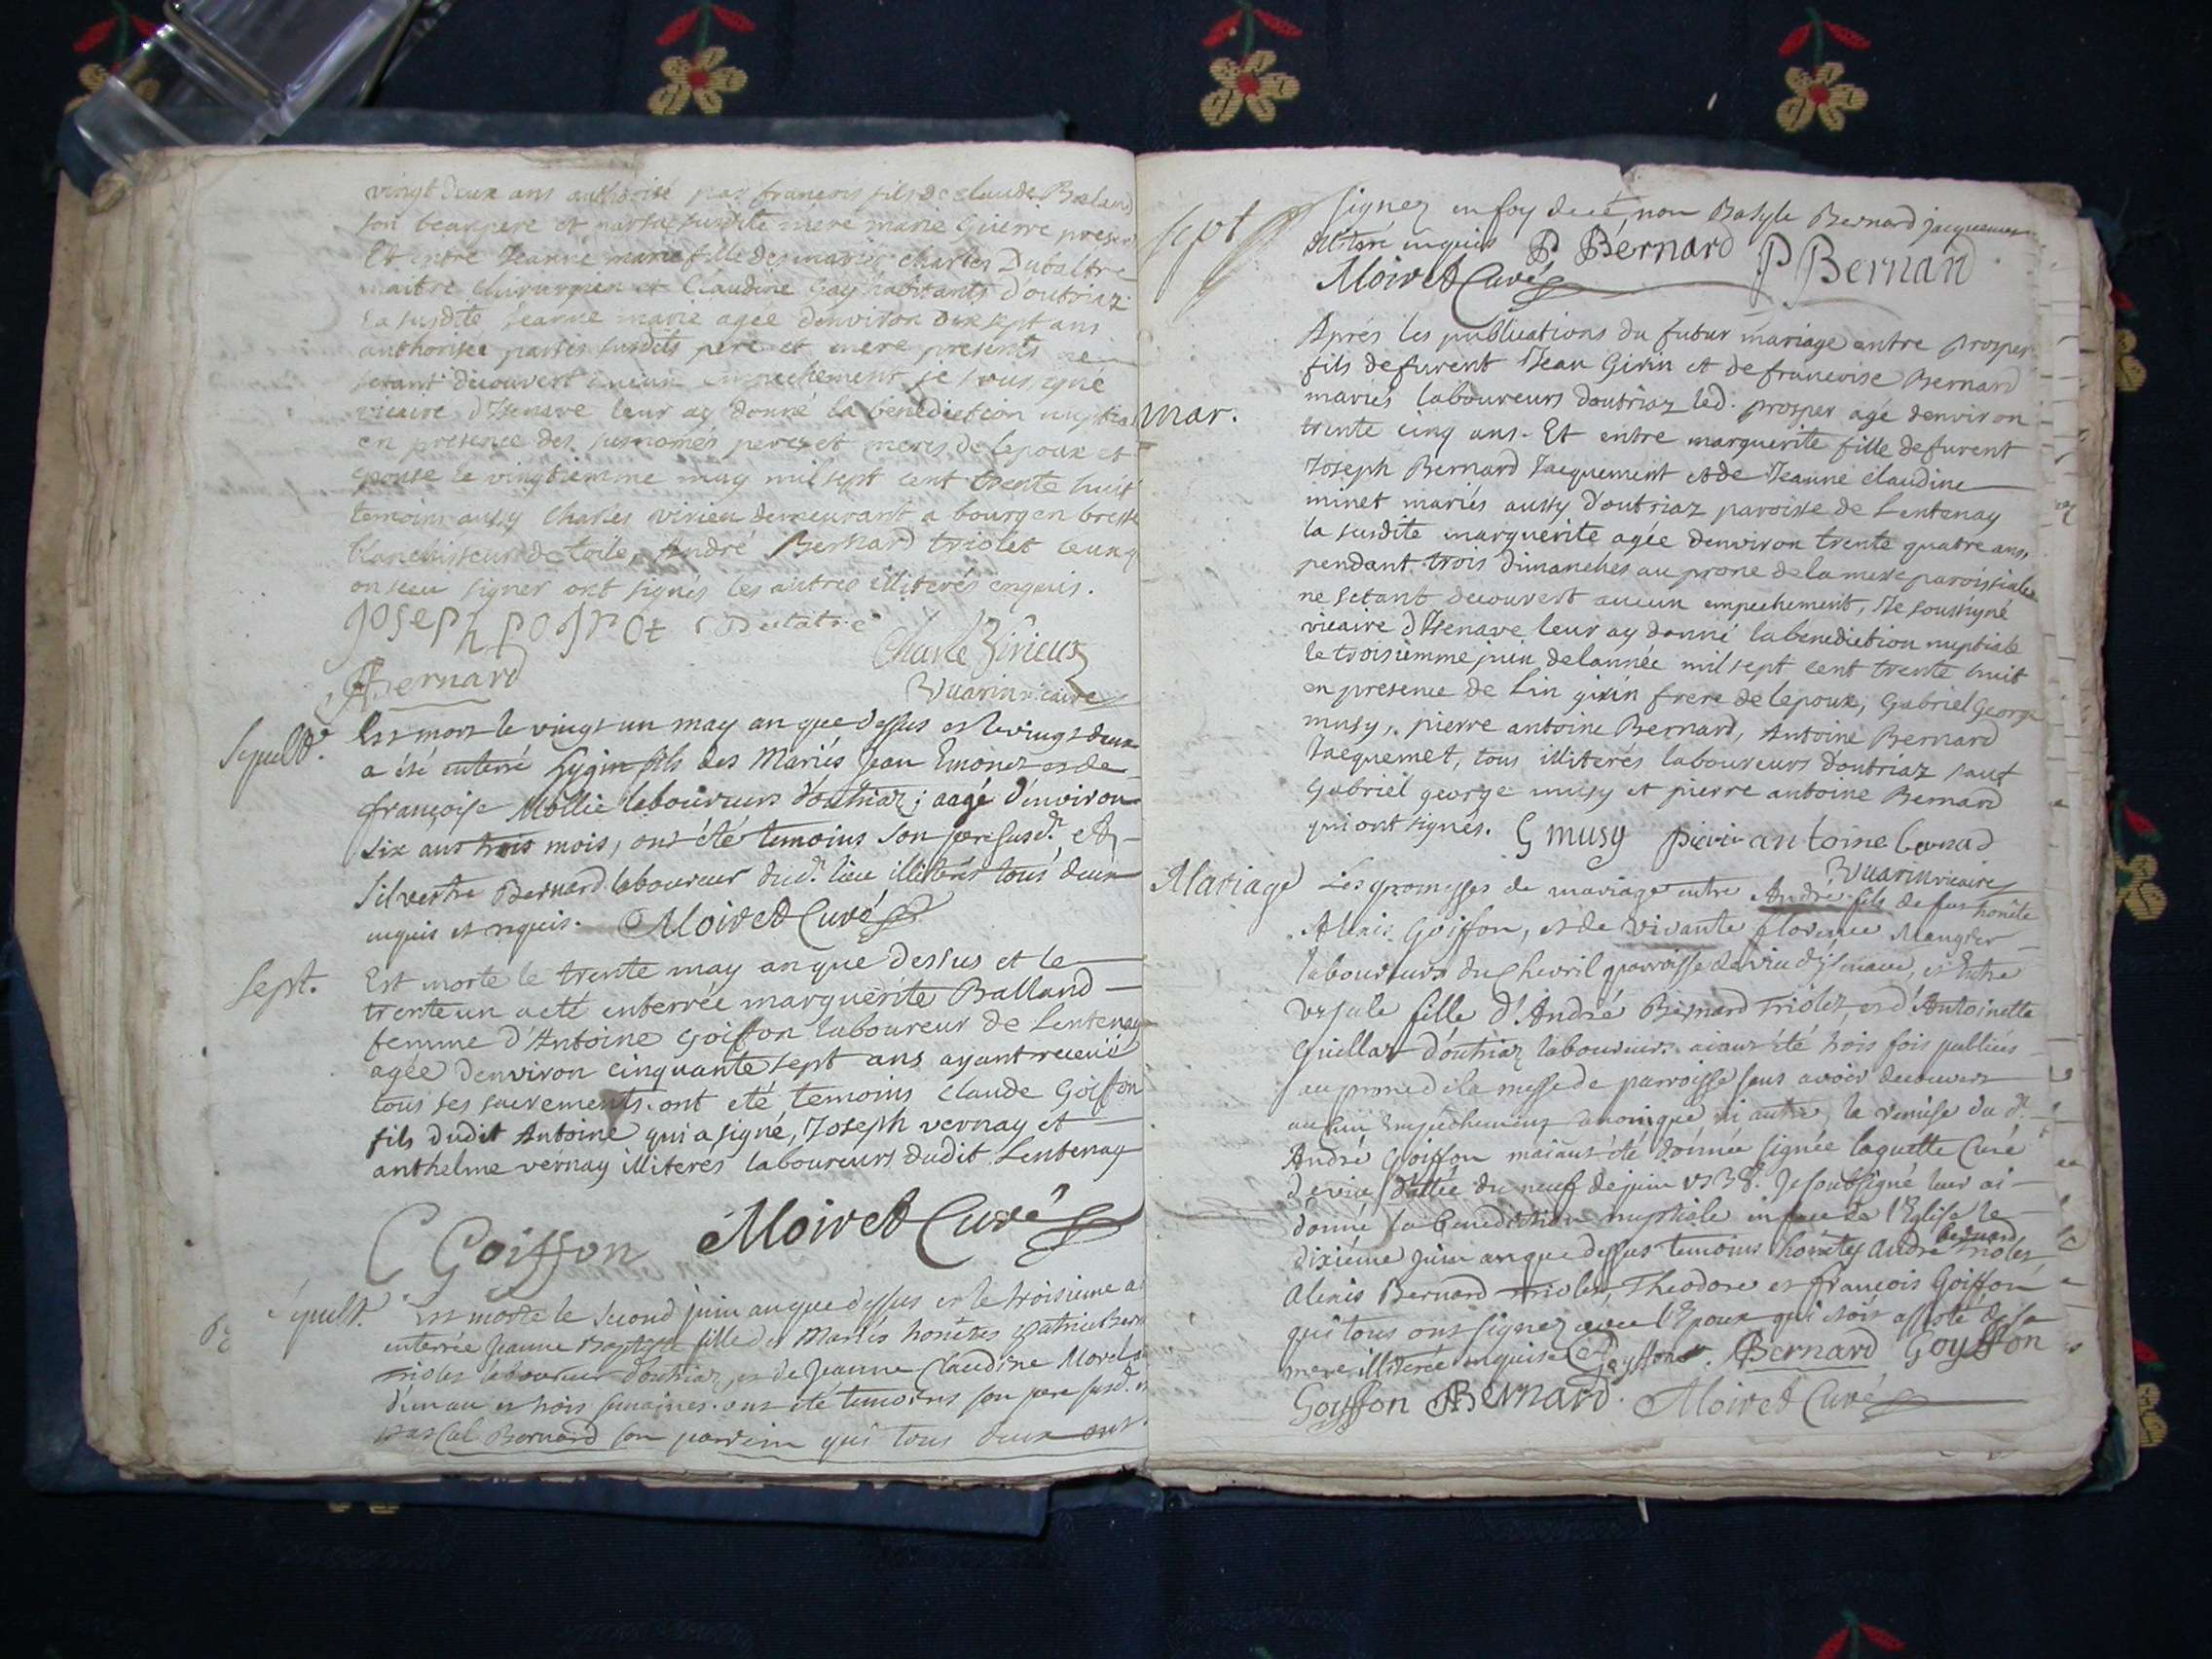 vingt deux ans authorisé par francois fils de claude Baland
son beaupere et par sa susdite mere marie Guerre presents
Et entre Jeanne marie fille des mariés charles Dubaltre
maitre chirurgien et Claudine Gay habitants d'outriaz
La susdite Jeanne marie agée denviron dix sept ans
authorisée par ses susdits pere et mere presents ne
setant découvert aucun empechement je soussigné
vicaire d'Izenave leur ay donné la benediction nuptiale
en presence des susnomés peres et meres de lepoux et
epouse le vingtiemme may mil sept cent trente huit
temoins aussy Charles virieu demeurant a bourg en bresse
blanchisseur de toile, André Bernard triolet ceux q
on sceu signer ont signés les autres illiterés enquis.
Joseph
Charle Virieux
A Bernard
Vuarin vicaire
Sepult.
Est mort le vingt un may an que dessus et le vingt deux
a été enterré Hygin fils des Mariés Jean Emonet et de
françoise Mollie laboureurs d'outriaz; aagé d'environ
six ans trois mois, ont été temoins son pere susd. et
Silvestre Bernard laboureur dud. lieu illiterés tous deux
enquis et requis. Moiret Curé
Sept.
Est morte le trente may an que dessus et le
trente un a eté enterrée marguerite Balland
femme d'Antoine Goiffon laboureur de Lentenay
agée denviron cinquante sept ans ayant receuë
tous ses sacrements. ont eté temoins Claude Goiffon
fils dudit Antoine qui a signé, Joseph vernay et
anthelme vernay illiterés laboureurs dudit Lentenay
C Goiffon Moiret Curé
Sépult.
Est morte le second juin an que dessus et le troisieme a
enterrée Jeanne Baptiste fille des Mariés honêtes Patrice Bern
triolet laboureur d'outriaz, et de Jeanne Claudine Morel
d'un an et trois semaines. ont été temoins son pere susd. et
pascal Bernard son parrein qui tous deux ont
sept
signez en foy de cé, non Basyle Bernard jacquemet
illiteré enquis P Bernard P Bernard
Moiret Curé
mar.
Aprés les publications du futur mariage entre prosper
fils defurent Jean Girin et de francoise Bernard
mariés laboureurs doutriaz led. prosper agé denviron
trente cinq ans. Et entre marguerite fille defurent
Joseph Bernard Jacquement et de Jeanne claudine
minet mariés aussy d'outriaz paroisse de Lentenay
la susdite marguerite agée denviron trente quatre ans,
pendant trois dimanches au prone de la messe paroissiale
ne setant decouvert aucun empechement, Je soussigné
vicaire d'Izenave leur ay donné la benediction nuptiale
le troisiemme juin de lannée mil sept cent trente huit
en presence de Lin girin frere de lepoux, Gabriel George
musy, pierre antoine Bernard, Antoine Bernard
Jacquemet, tous illiterés laboureurs d'outriaz sauf
Gabriel george musy et pierre antoine Bernard
qui ont signés. G musy pierre antoine bernad
Vuarin vicaire
Mariage
Les promesses de mariage entre André fils de feu honête
Alexis Goiffon, et de vivante florence
laboureurs du Chevril parroisse de vieu d'isenave, et Entre
Ursule fille d'André Bernard Triolet, et d'Antoinette
Guillat d'outriaz laboureurs aiant été trois fois publiées
au prone de la messe de parroisse sans avoir decouvert
aucun Empechement canonique ni autre, la remise du d.
André Goiffon m'aiant été donnée signée laquette Curé
de vieu dattée du neuf de juin 1738. Je soubsigné leur ai
donné la benediction nuptiale en face de l'Eglise le
dixiéme juin an que dessus temoins honêtes André bernard Triolet
Alexis Bernard Triolet, Theodore et françois Goiffon
qui tous ont signez avec l'Epoux qui etoit assisté de sa
mere illiterée enquise Goyffon. Bernard Goyffon
Goyffon ABernard. Moiret Curé